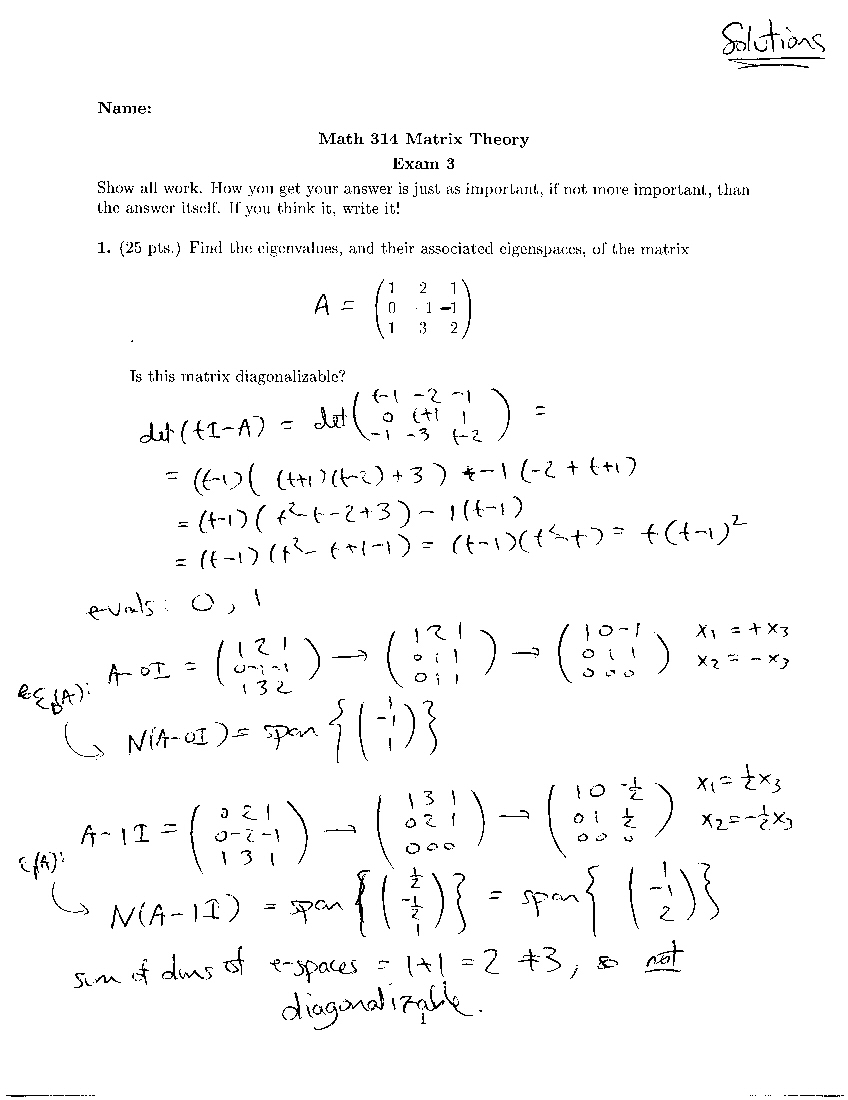 Solutions
Name:
Math 314 Matrix Theory
Exam 3
Show all work. How you get your answer is just as important, if not more important, than
the answer itself. If you think it, write it!
1. (25 pts.) Find the eigenvalues, and their associated eigenspaces, of the matrix
A = ( 1 2 1
0 -1 -1
1 3 2 )
Is this matrix diagonalizable?
det(tI-A) = det( t-1 -2 -1
0 t+1 1
-1 -3 t-2 ) =
= (t-1)( (t+1)(t-2)+3 ) + -1 (-2 + t+1)
= (t-1)( t²-t-2+3 ) - 1(t-1)
= (t-1)(t²-t+1-1) = (t-1)(t²-t) = t(t-1)²
e-vals: 0, 1
E₀(A): A-0I = ( 1 2 1
0 -1 -1
1 3 2 ) → ( 1 2 1
0 1 1
0 1 1 ) → ( 1 0 -1
0 1 1
0 0 0 ) x₁ = +x₃
x₂ = -x₃
↳ N(A-0I) = span { ( 1
-1
1 ) }
E₁(A): A-1I = ( 0 2 1
0 -2 -1
1 3 1 ) → ( 1 3 1
0 2 1
0 0 0 ) → ( 1 0 -½
0 1 ½
0 0 0 ) x₁ = ½x₃
x₂ = -½x₃
↳ N(A-1I) = span { ( ½
-½
1 ) } = span { ( 1
-1
2 ) }
sum of dims of e-spaces = 1+1 = 2 ≠ 3, so not
diagonalizable.